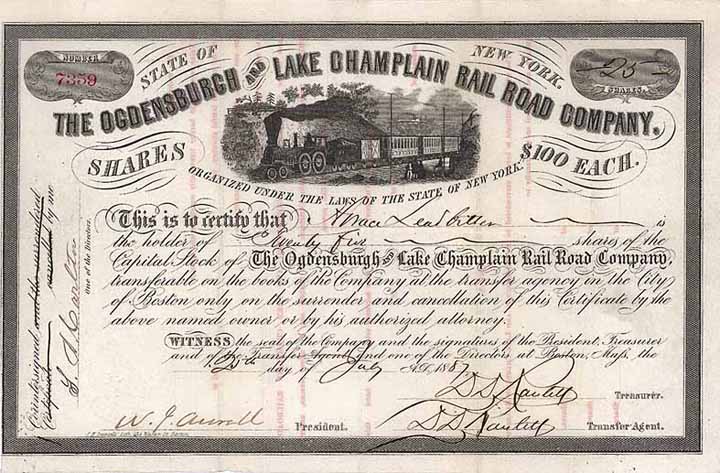 NUMBER
7359
STATE OF NEW YORK.
25
SHARES.
THE OGDENSBURGH AND LAKE CHAMPLAIN RAIL ROAD COMPANY.
SHARES $100 EACH.
ORGANIZED UNDER THE LAWS OF THE STATE OF NEW YORK.
This is to certify that Horace Leadbitter is
the holder of Twenty five shares of the
Capital Stock of The Ogdensburgh and Lake Champlain Rail Road Company
transferable on the books of the Company at the transfer agency in the City
of Boston only on the surrender and cancellation of this Certificate by the
above named owner or by his authorized attorney.
WITNESS the seal of the Company and the signatures of the President, Treasurer
and Transfer Agent and one of the Directors at Boston, Mass, the
day of July A.D. 1887
Treasurer.
President.
Transfer Agent.
Countersigned and the
by me
one of the Directors.